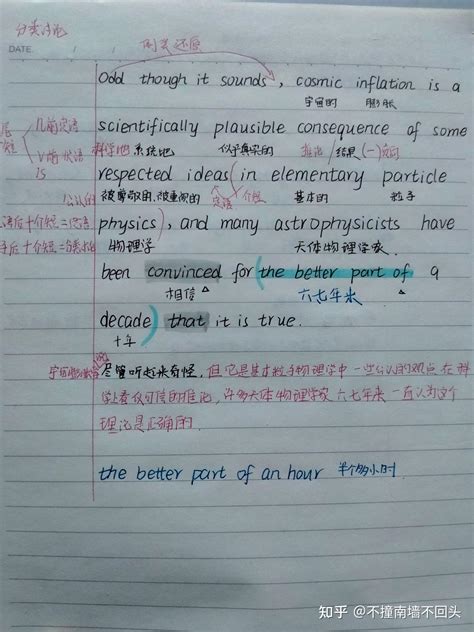 分类讨论
DATE
倒装还原
Odd though it sounds, cosmic inflation is a
宇宙的 膨胀
scientifically plausible consequence of some
n前定语
科学地 系统地 似乎真实的 推论/结果
V前状语
is
respected ideas (in elementary particle
被尊敬的, 被重视的 定语 介短 基本的 粒子
公认的
physics), and many astrophysicists have
物理学 天体物理学家
been convinced for (the better part of a
相信 六七年来
decade) that it is true.
十年
尽管听起来奇怪, 但它是基本粒子物理学中一些公认的观点在科
学上看似可信的推论, 许多天体物理学家六七年来一直认为这个
理论是正确的.
the better part of an hour 半个多小时
知乎 @不撞南墙不回头